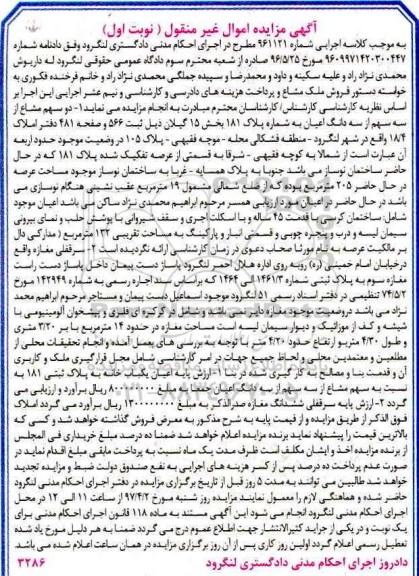 آگهی مزایده اموال غیر منقول ( نوبت اول)
به موجب کلاسه اجرایی شماره ۹۶۱۱۲۱ مطرح در اجرای احکام مدنی دادگستری لنگرود وفق دادنامه شماره
۹۶۰۹۹۷۱۴۲۰۳۰۰۴۴۷ مورخ ۹۶/۵/۲۵ صادره از شعبه محترم سوم دادگاه عمومی حقوقی لنگرود له داریوش
محمدی نژاد راد و علیه سکینه و داود و محمدرضا و سپیده جملگی محمدی نژاد راد و خانم فرخنده فکوری به
خواسته دستور فروش ملک مشاع و پرداخت هزینه های دادرسی و کارشناسی و نیم عشر اجرایی این اجرا بر
اساس نظریه کارشناسی کارشناس/ کارشناسان محترم مبادرت به انجام مزایده می نماید۱- دو سهم مشاع از
سه سهم از سه دانگ اعیان به شماره پلاک ۱۸۱ بخش ۱۵ گیلان ذیل ثبت ۵۶۶ و صفحه ۴۸۱ دفتر املاک
۱۸/۴ واقع در شهر لنگرود - منطقه فشکالی محله - موجه فقیهی - پلاک ۱۰۵ در وضعیت موجود حدود اربعه
آن عبارت است از شمالا به کوچه فقیهی - شرقا به قسمتی از عرصه تفکیک شده پلاک ۱۸۱ که در حال
حاضر ساختمان نوساز می باشد جنوبا به پلاک همسایه - غربا به ساختمان نوساز موجود مساحت عرصه
در حال حاضر ۲۰۵ مترمربع بوده که از ضلع شمالی مشمول ۱۹ مترمربع عقب نشینی هنگام نوسازی می
باشد در حال حاضر در اعیان مورد ارزیابی همسر مرحوم ابراهیم محمدی نژاد ساکن می باشد اعیان موجود
شامل: ساختمان کرسی با قدمت ۴۵ ساله و با اسکلت آجری و سقف شیروانی با پوشش حلب و نمای بیرونی
سیمان لیسه و درب و پنجره چوبی و قسمتی انبار و پارکینگ به مساحت تقریبی ۱۳۲ مترمربع ( مدارکی دال
بر مالکیت عرصه به نام مورثا صحاب دعوی در زمان کارشناسی ارائه نگردیده است ۲- سرقفلی مغازه واقع
درخیابان امام خمینی (ره) روبه روی اداره هلال احمر لنگرود پاساژ دست پیمان داخل پاساژ دست راست
مغازه سوم به پلاک ثبتی شماره ۱۴۶۱/۳ الی ۱۴۶۴ که براساس سند اجاره رسمی به شماره ۱۴۲۹۴۹ مورخ
۷۴/۵/۲ تنظیمی در دفتر اسناد رسمی ۵۱ لنگرود موجود اسماعیل دست پیمان و مستاجر مرحوم ابراهیم محمد
نژاد می باشد دروضعیت موجود مغازه دایر نمی باشد و شامل در کرکره ای فلزی و پیشخوان آلومینیومی با
شیشه و کف از موزائیک و دیوار سیمان لیسه است مساحت مغازه در حدود ۱۴ مترمربع با بر ۳/۲۰ متری
و طول ۴/۳۰ مترو ارتفاع حدود ۴/۲۰ متر با توجه به بررسی های بعمل آمده و انجام تحقیقات محلی از
مطلعین و معتمدین محلی و لحاظ جمیع جهات در امر کارشناسی شامل محل قرارگیری ملک و کاربری
آن و قدمت بنا و مصالح به کار گیری شده در بنا: ۱- ارزش پایه اعیان یکباب خانه به پلاک ثبتی ۱۸۱ به
نسبت دو سهم مشاع از سه سهم از سه دانگ اعیان معادل مبلغ ریال برآورد و ارزیابی می
گردد ۲- ارزش پایه سرقفلی ششدانگ مغازه صدرالذکر به مبلغ ریال برآورد می گردد املاک
فوق الذکر از طریق مزایده و از قیمت پایه به شرح مذکور به معرض فروش گذاشته خواهد شد و کسی که
بالاترین قیمت را پیشنهاد نماید برنده مزایده اعلام خواهد شد ضمنا ده درصد مبلغ خریداری فی المجلس
از برنده مزایده اخذ و ایشان مکلف است ظرف مدت یک ماه نسبت به پرداخت مابقی مبلغ اقدام نماید در
صورت عدم پرداخت ده درصد پس از کسر هزینه های اجرایی به نفع صندوق دولت ضبط و مزایده تجدید
خواهد شد طالبین می توانند به مدت ۵ روز قبل از تاریخ برگزاری مزایده در دفتر اجرای احکام مدنی لنگرود
حاضر شده و هماهنگی لازم را معمول نمایند مزایده روز شنبه مورخ ۹۷/۴/۲ از ساعت ۱۱ الی ۱۲ در محل
اجرای احکام مدنی لنگرود انجام می شود این آگهی مستند به ماده ۱۱۸ قانون اجرای احکام مدنی در
یک نوبت و در یکی از جراید کثیرالانتشار جهت اطلاع عموم درج می گردد ضمنا به هر دلیل مورخ یاد شده
تعطیل رسمی اعلام گردد اولین روز کاری پس از آن روز برگزاری مزایده در همان ساعت اعلام شده می باشد.
دادرز اجرای احکام مدنی دادگستری لنگرود ۳۲۸۶